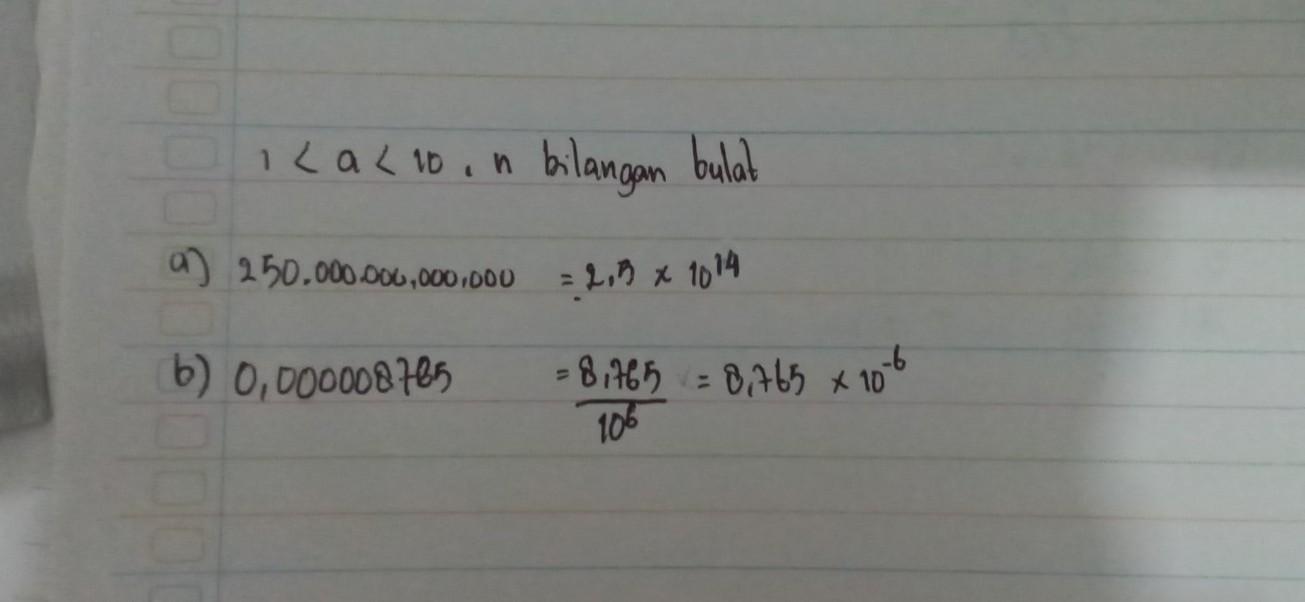 1 < a < 10, n bilangan bulat
a) 250.000.000,000,000 = 2,5 × 10¹⁴
b) 0,000008765 = 8,765/10⁶ = 8,765 × 10⁻⁶